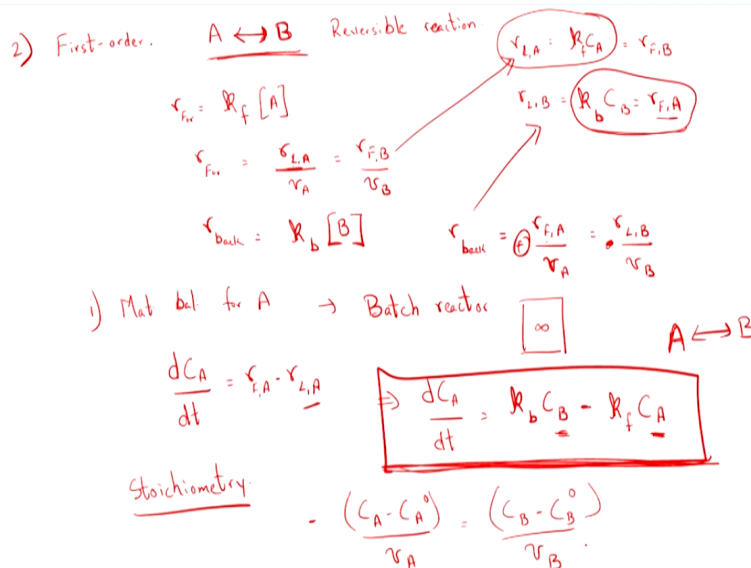 2) First-order. A ↔ B Reversible reaction
r_{L,A} = k_f C_A = r_{F,B}
r_{For} = k_f [A]
r_{L,B} = k_b C_B = r_{F,A}
r_{For} = r_{L,A}/ν_A = r_{F,B}/ν_B
r_{back} = k_b [B]
r_{back} = (+) r_{F,A}/ν_A = r_{L,B}/ν_B
1) Mat bal. for A → Batch reactor
∞
A ↔ B
dC_A/dt = r_{F,A} - r_{L,A}
⇒ dC_A/dt = k_b C_B - k_f C_A
Stoichiometry.
- (C_A - C_A^0)/ν_A = (C_B - C_B^0)/ν_B.